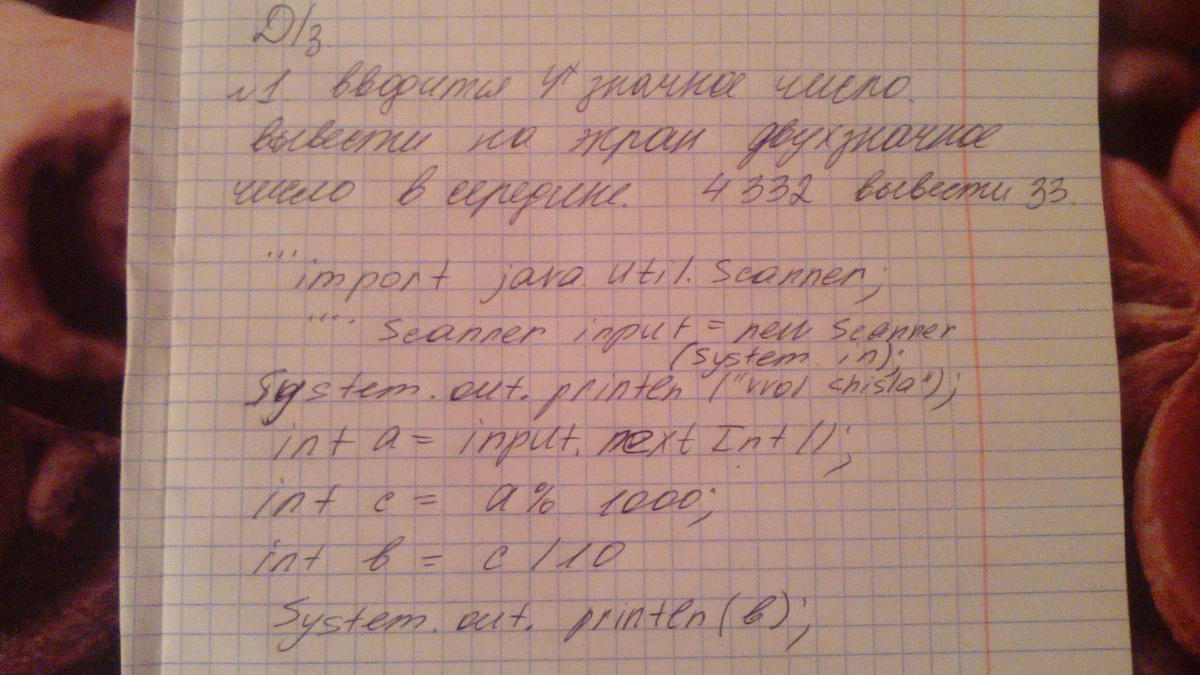 Д/з.
№1. вводится 4х значное число.
вывести на экран двухзначное
число в середине. 4332 вывести 33.
'''import java.util.Scanner;
'''' Scanner input = new Scanner
(System.in);
System.out.println ("vvod chisla");
int a = input.nextInt();
int c = a% 1000;
int в = c /10
System.out.println(в);